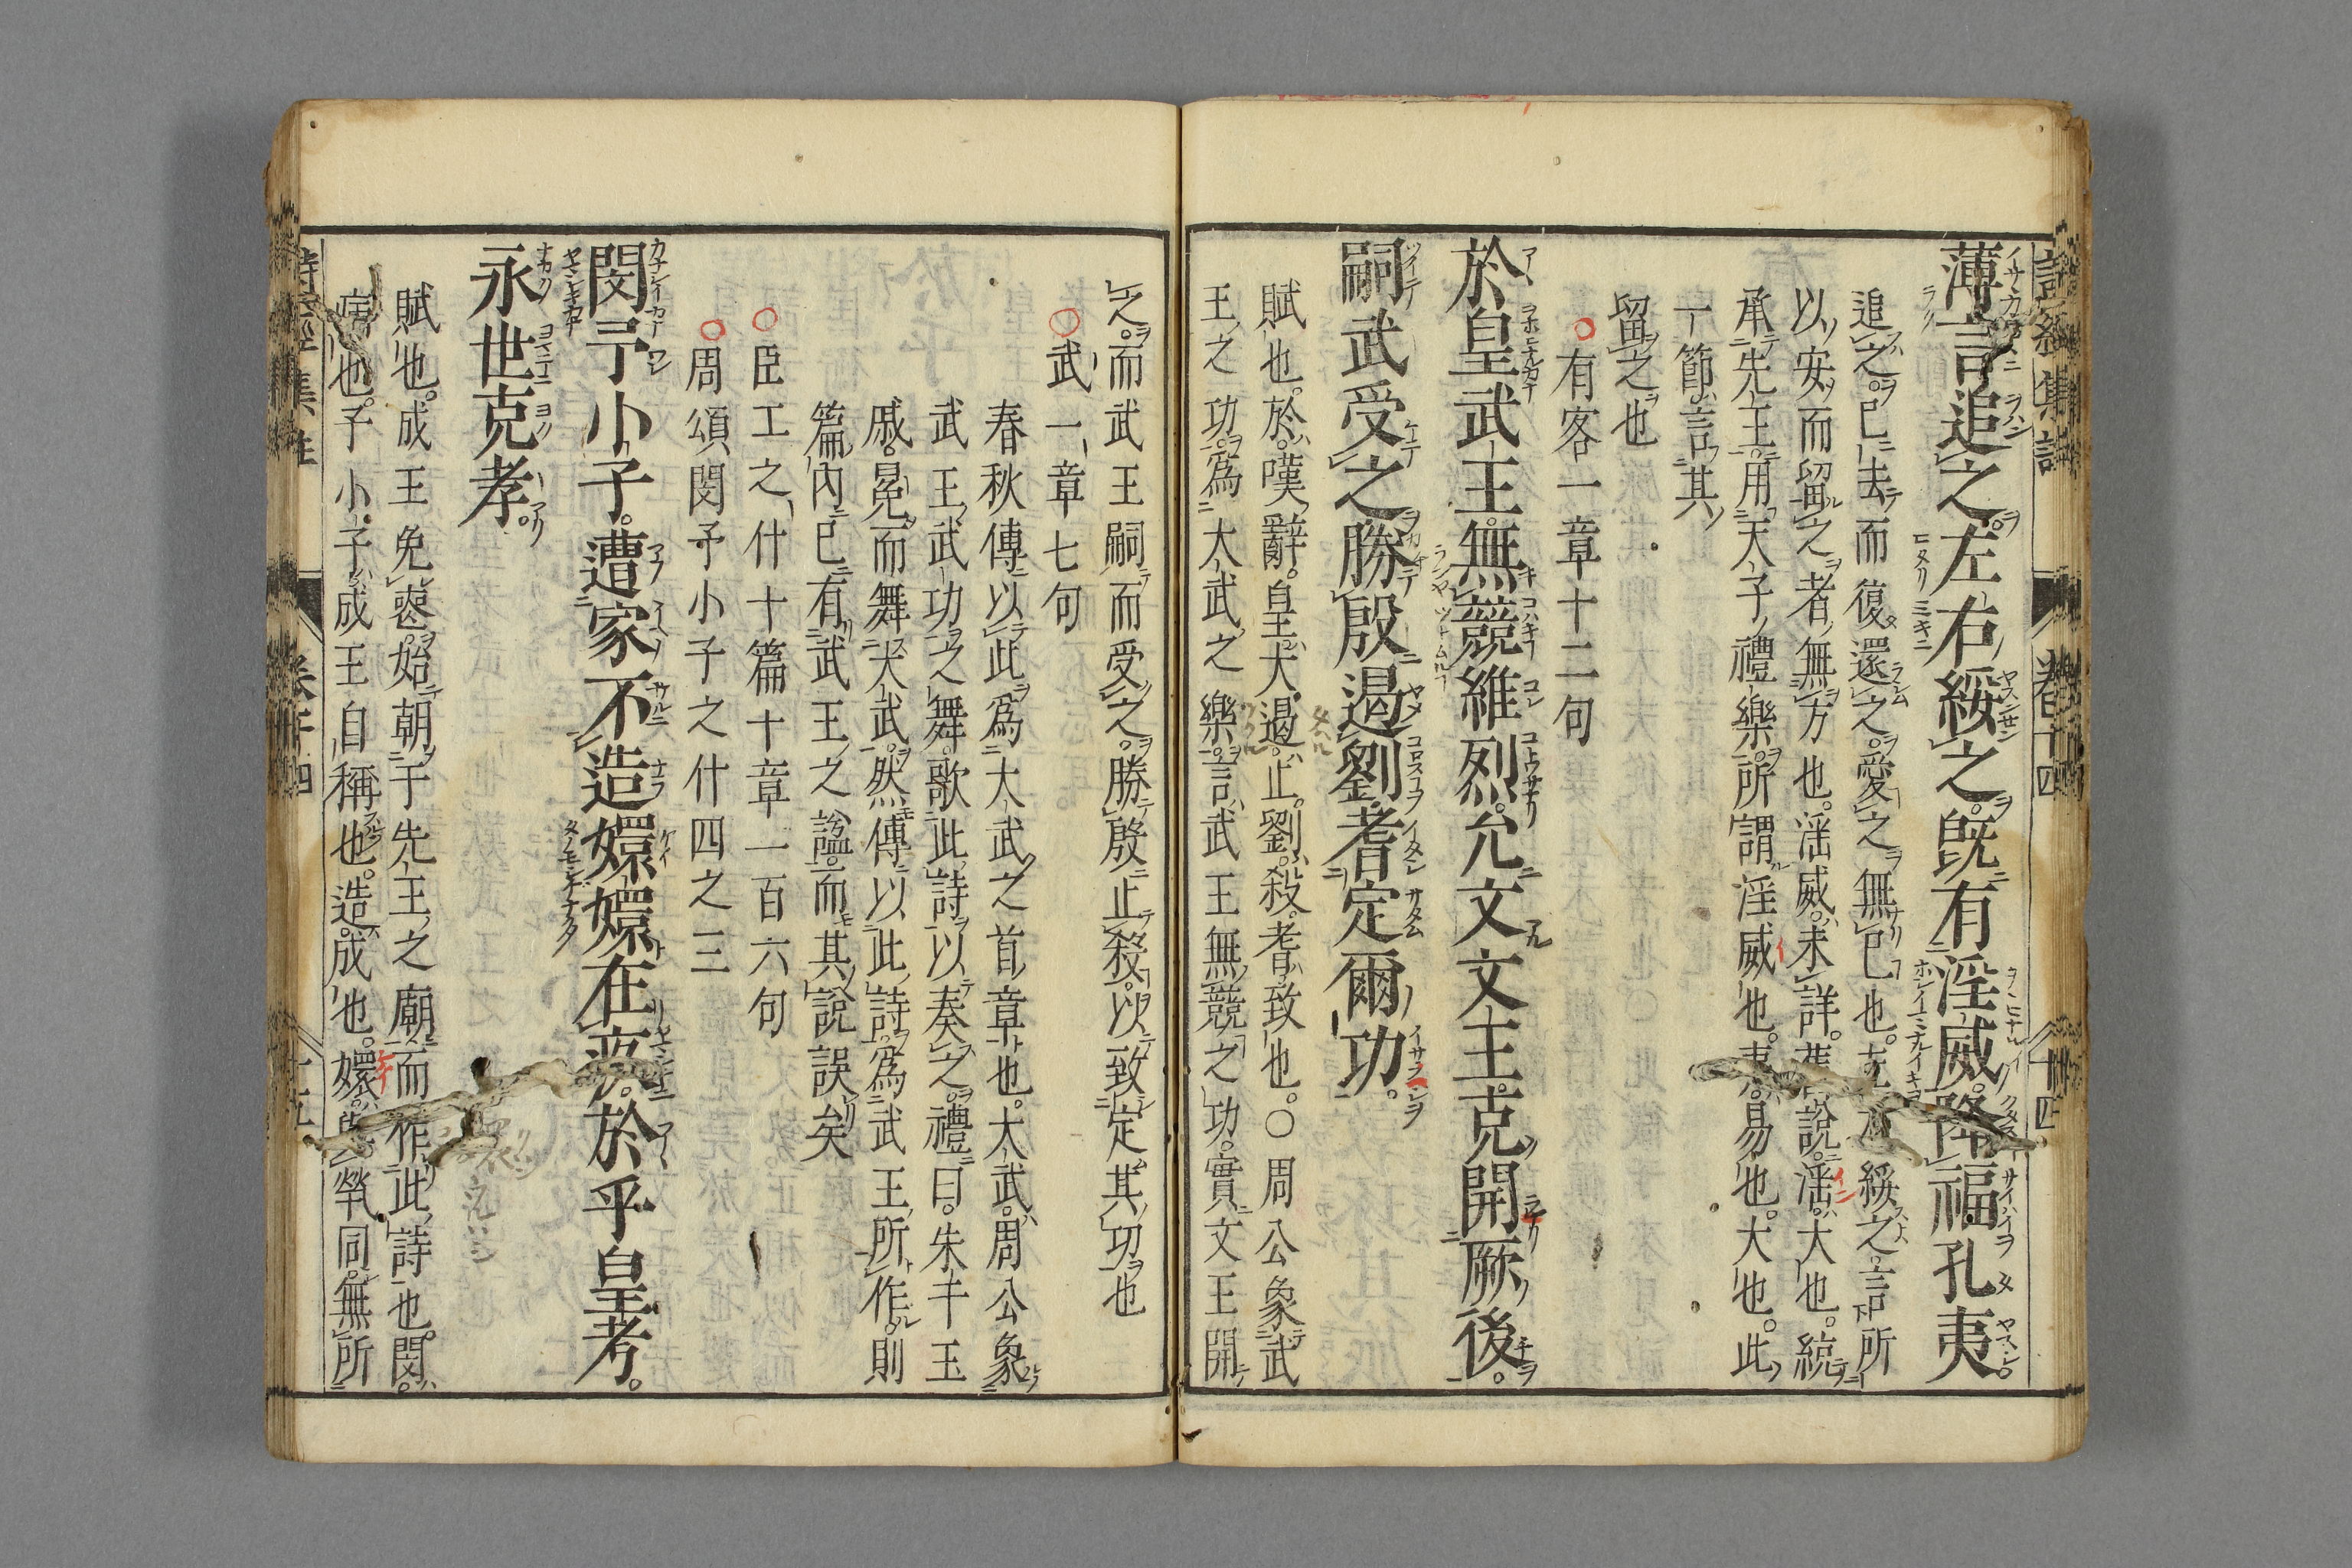 薄言追之。左右綏之。既有淫威。降福孔夷。
追之。已去而復還之。愛之無已也。左右綏之。言所
以安而留之者。無方也。淫威。未詳。舊說。淫。大也。統
承先王。用天子禮樂。所謂淫威也。夷。易也。大也。此
一節言其
留之也
○有客一章十二句
於皇武王。無競維烈。允文文王。克開厥後。
嗣武受之。勝殷遏劉。耆定爾功。
賦也。於。嘆辭。皇。大。遏。止。劉。殺。耆。致也。○周公象武
王之功。爲大武之樂。言武王無競之功。實文王開
之。而武王嗣而受之。勝殷止殺。以致定其功也
○武一章七句
春秋傳以此爲大武之首章也。大武。周公象
武王武功之舞。歌此詩以奏之。禮曰。朱干玉
戚。冕而舞大武。然傳以此詩。爲武王所作。則
篇內已有武王之謚。而其說誤矣
○臣工之什十篇十章一百六句
○周頌閔予小子之什四之三
閔予小子。遭家不造。嬛嬛在疚。於乎皇考。
永世克孝。
賦也。成王免喪。始朝于先王之廟。而作此詩也。閔。
病也。子小子。成王自稱也。造。成也。嬛。與煢同。無所